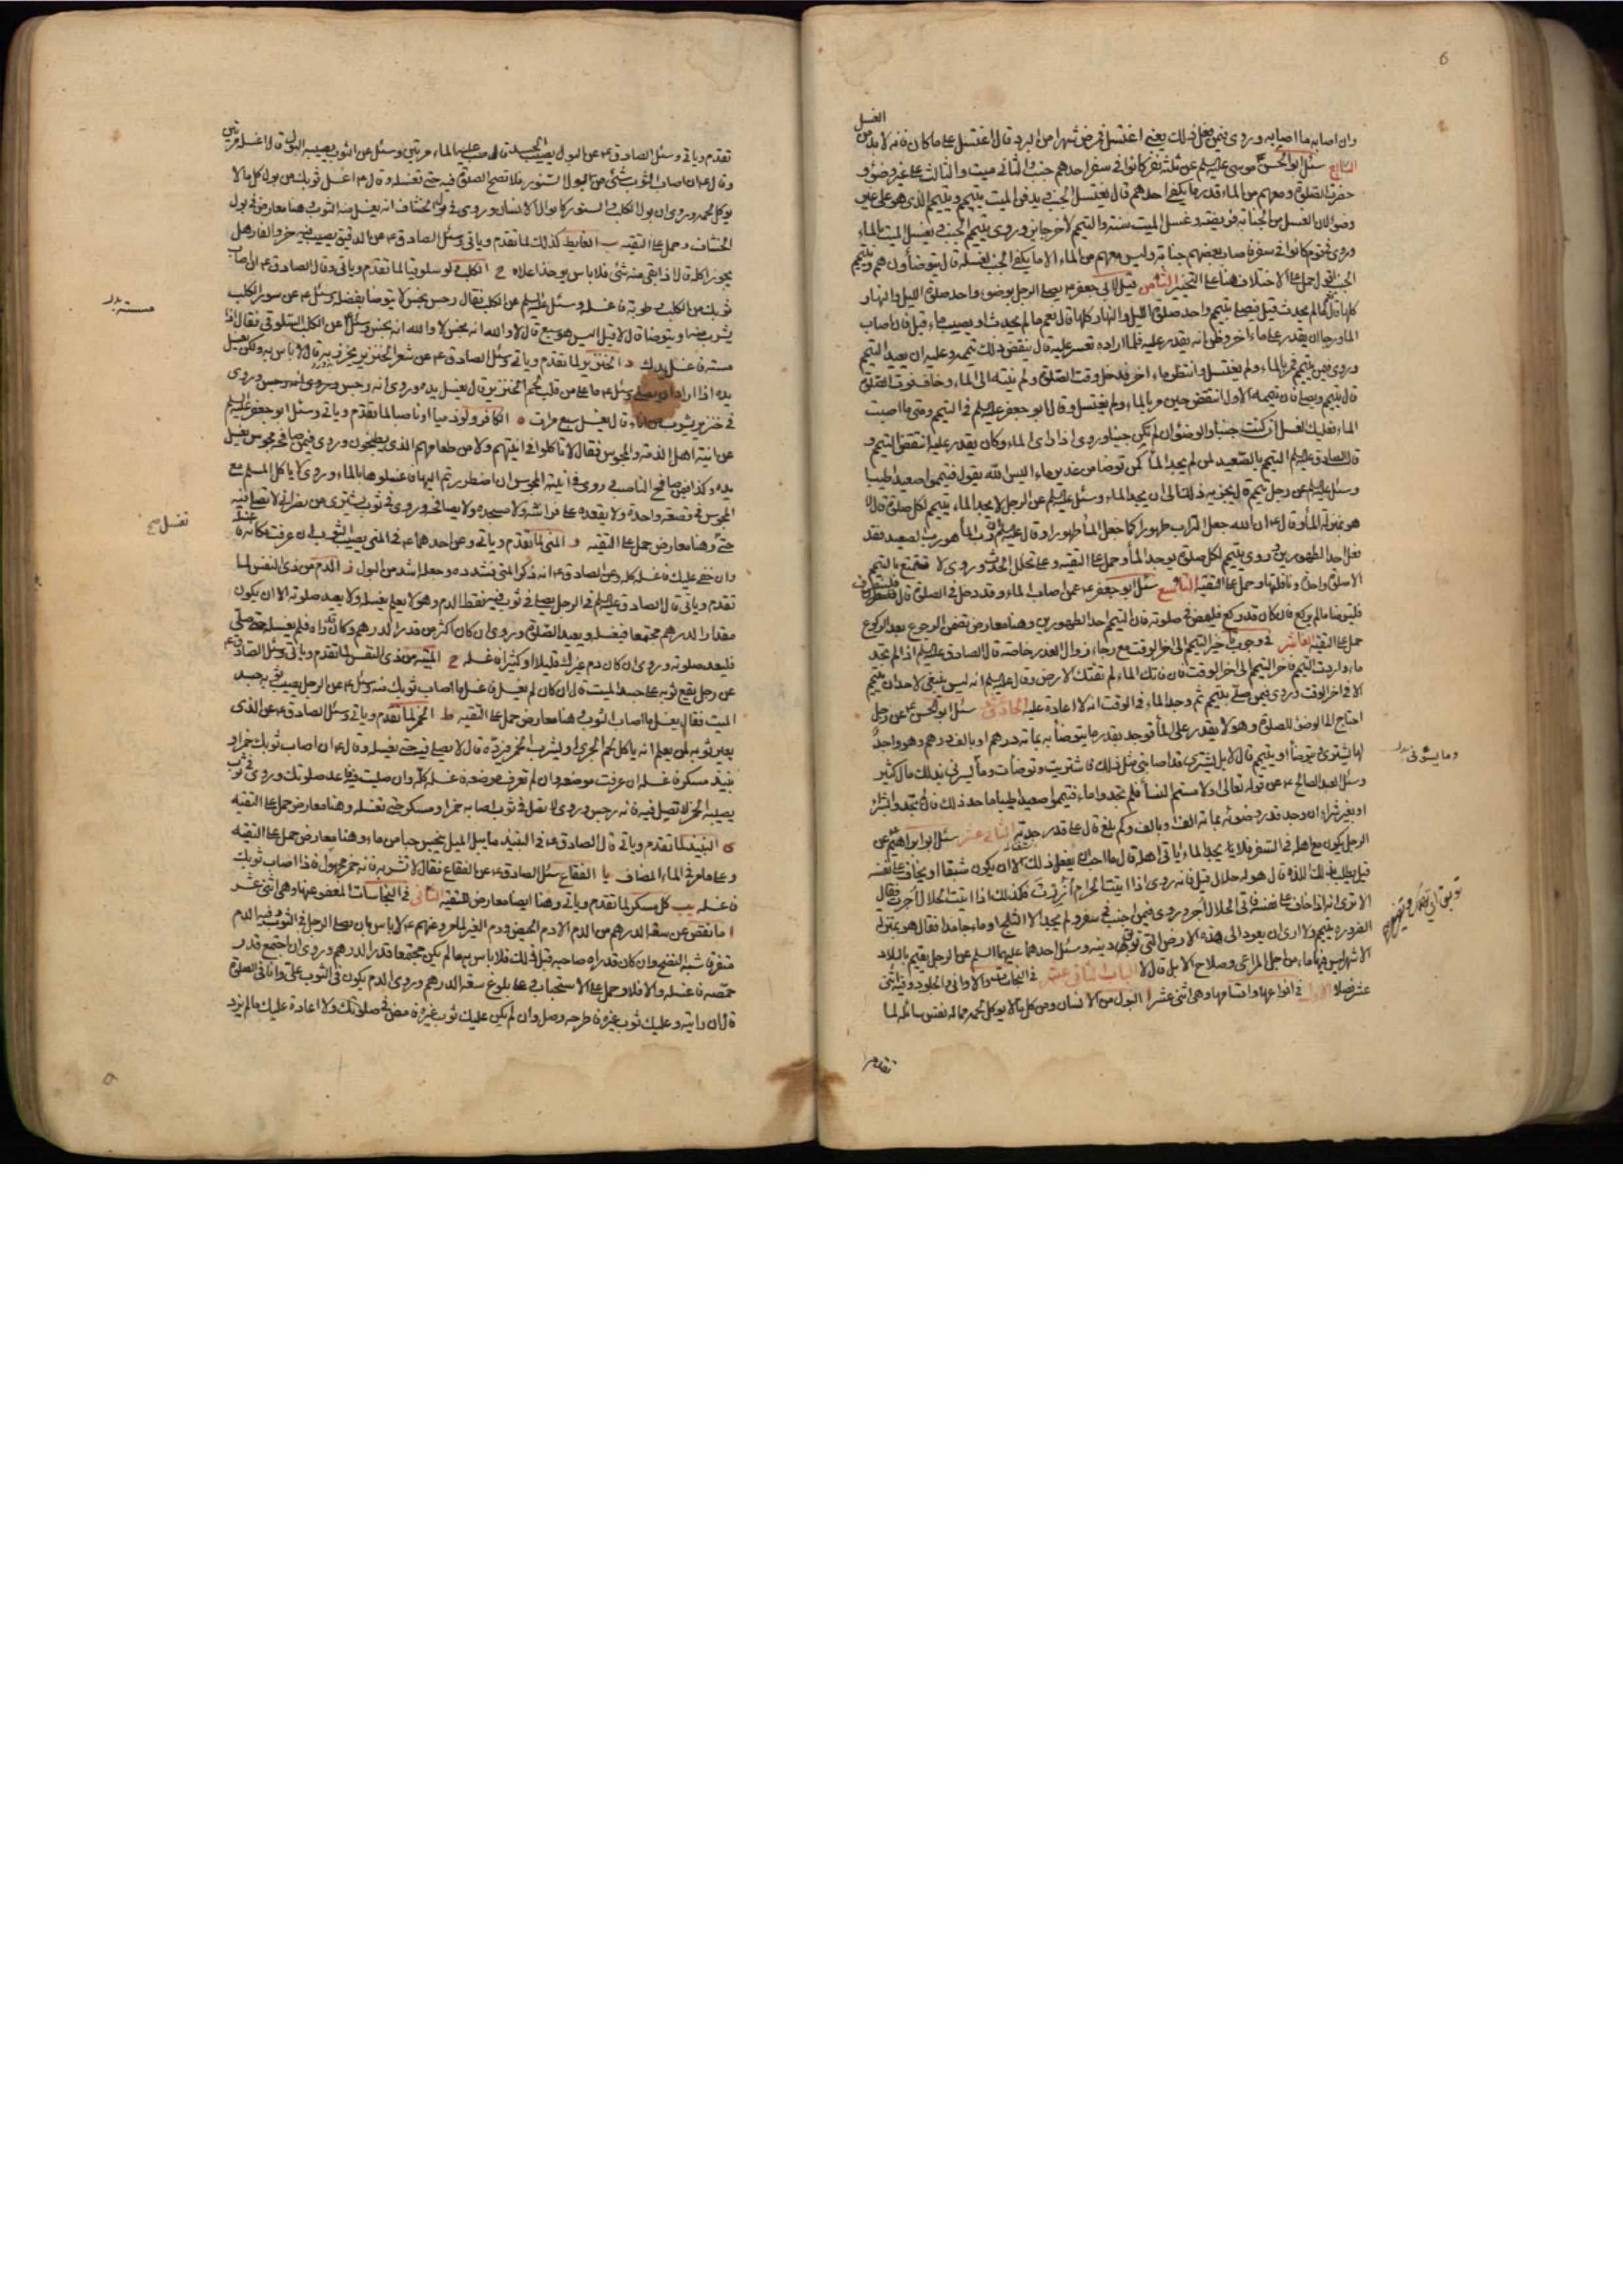 6
الغسل
وان اصابه ما اصابه وروى فيمن فعل ذلك يعنى اغتسل فمرض شهرا من البرد قال اغتسل على ما كان فانه لا بد من
السابع سئل ابو الحسن موسى عليه السلم عن ثلثة نفر كانوا فى سفر احدهم جنب والثانى ميت والثالث على غير وضوء و
حضرت الصلوة ومعهم من الماء قدر ما يكفى احدهم قال يغتسل الجنب ويدفن الميت بتيمم ويتيمم الذى هو على غير
وضوء لان الغسل من الجنابة فريضة وغسل الميت سنة والتيمم للاخر جايز وروى يتيمم الجنب ويغسل الميت بالماء
وروى فى قوم كانوا فى سفر فاصاب بعضهم جنابة وليس معهم من الماء الا ما يكفى الجنب لغسله قال يتوضأون هم ويتيمم
الجنب حمل على الاختلاف هنا على التخيير الثامن قيل لابى جعفر ع يصلى الرجل بوضوء واحد صلوة الليل والنهار
كلها قال نعم ما لم يحدث قيل فيصلى بتيمم واحد صلوة الليل والنهار كلها قال نعم ما لم يحدث او يصيب ماء قيل فان اصاب
الماء ورجا ان يقدر على ماء اخر وظن انه يقدر عليه فلما اراده تعسر عليه قال ينقض ذلك تيممه وعليه ان يعيد التيمم
وروى فيمن تيمم فمر بالماء ولم يغتسل وانتظر ماء اخر فدخل وقت الصلوة ولم ينته الى الماء وخاف فوت الصلوة
قال يتيمم ويصلى فان تيممه الاول انتقض حين مر بالماء ولم يغتسل وقال ابو جعفر عليه السلم فى التيمم ومتى ما اصبت
الماء فعليك الغسل ان كنت جنبا والوضوء ان لم تكن جنبا وروى اذا راى الماء وكان يقدر عليه انتقض التيمم و
قال الصادق عليه السلم التيمم بالصعيد لمن لم يجد الماء كمن توضا من غدير من ماء اليس الله يقول فتيمموا صعيدا طيبا
وسئل عليه السلم عن رجل تيمم قال يجزيه ذلك الى ان يجد الماء وسئل عليه السلم عن الرجل لا يجد الماء يتيمم لكل صلوة قال لا
هو بمنزلة الماء وقال ع ان الله جعل التراب طهورا كما جعل الماء طهورا وقال عليه السلم ان رب الماء هو رب الصعيد فقد
فعل احد الطهورين وروى يتيمم لكل صلوة يوجد الماء وحمل على التقية وعلى تخلل الحدث وروى لا يتمتع بالتيمم
الا صلوة واحدة ونافلتها وحمل على التقية التاسع سئل ابو جعفر ع عمن اصاب الماء وقد دخل فى الصلوة قال فلينصرف
فليتوضا ما لم يركع فان كان قد ركع فليمض فى صلوته فان التيمم احد الطهورين وهنا معارض تضمن الرجوع بعد الركوع
حمل على التقية العاشر فى وجوب تاخير التيمم الى اخر الوقت مع رجاء زوال العذر خاصة قال الصادق عليه السلم اذا لم تجد
ماء واردت التيمم فاخر التيمم الى اخر الوقت فان فاتك الماء لم تفتك الارض وقال عليه السلم انه ليس ينبغى لاحد ان يتيمم
الا فى اخر الوقت وروى فيمن صلى بتيمم ثم وجد الماء فى الوقت انه لا اعادة عليه الحادى عشر سئل ابو الحسن ع عن رجل
احتاج الى الوضوء للصلوة وهو لا يقدر على الماء فوجد بقدر ما يتوضأ به بمائة درهم او بالف درهم وهو واجد
لها ايشترى ويتوضأ او يتيمم قال لا بل يشترى قد اصابنى مثل ذلك فاشتريت وتوضات وما يسرنى بذلك مال كثير
وما يشترى بدل
وسئل العبد الصالح ع عن قوله تعالى او لامستم النسأ فلم تجدوا ماء فتيمموا صعيدا طيبا ما حد ذلك فان لم تجدوا بشراء
او بغير شراء ان وجد قدر وضوئه بمائة الف او بالف وكم بلغ قال على قدر جدته الثانى عشر سئل ابو ابراهيم ع عن
الرجل يكون مع اهله فى السفر فلا يجد الماء ياتى اهله قال ما احب ان يفعل ذلك الا ان يكون شبقا او يخاف على نفسه
قيل يطلب بذلك اللذة قال هو له حلال قيل فانه روى اذا اتيت الحرام أُزِرتَ فكذلك اذا اتيت الحلال أُجرت فقال
الا ترى انه اذا خاف على نفسه فاتى الحلال أُجر وروى فيمن اجنب فى سفر ولم يجد الا الثلج او ماء جامدا فقال هو بمنزلة
الضرورة يتيمم ولا ارى ان يعود الى هذه الارض التى توبق دينه وسئل احدهما عليهما السلم عن الرجل يقيم بالبلاد
الاشهر ليس فيها ماء من اجل المراعى وصلاح الابل قال لا الباب الثانى عشر فى النجاسات والاوانى والجلود وفيه اثنى
عشر فصلا الاول فى انواعها واقسامها وهى اثنى عشر ا البول من الانسان ومن كل ما لا يوكل لحمه مما له نفس سائلة لما
تقدم
تقدم وياتى وسئل الصادق ع عن البول يصيب الجسد قال صب عليه الماء مرتين وسئل عن الثوب يصيبه البول قال اغسله مرتين
وقال ع ان اصاب الثوب شئ من البول السنور فلا تصح الصلوة فيه حتى تغسله وقال ع اغسل ثوبك من بول كل ما لا
يوكل لحمه وروى ان بول الكلب والسنور كابوال الانسان وروى فى بول الخشاف انه يغسل منه الثوب وهنا معارض فى بول
الخشاف وحمل على التقية ب الغايط كذلك لما تقدم وياتى وسئل الصادق ع عن الدقيق يصيب فيه خرؤ الفار هل
يجوز اكله قال اذا بقى منه شئ فلا باس يوخذ اعلاه ج الكلب ولو سلوقيا لما تقدم وياتى وقال الصادق ع ان اصاب
ثوبك من الكلب رطوبة فاغسله وسئل عليه السلم عن الكلب فقال رجس نجس لا يتوضا بفضله وسئل ع عن سور الكلب
يشرب منه او يتوضا قال لا قيل اليس هو سبع قال لا والله انه نجس لا والله انه نجس وسئل ع عن الكلب السلوقى فقال اذا
مسسته فاغسل يدك د الخنزير لما تقدم وياتى وسئل الصادق ع عن شعر الخنزير يخرز به قال لا باس به ولكن يغسل
مسسته بدل
يده اذا اراد ان يصلى وسئل ع فاعلى من قلب لحم الخنزير قال يغسل يده وروى انه رجس وروى
فى خنزير شرب من اناء قال يغسل سبع مرات ه الكافر ولو ذميا او ناصبا لما تقدم وياتى وسئل ابو جعفر عليه السلم
عن انية اهل الذمة والمجوس فقال لا تاكلوا فى انيتهم ولا من طعامهم الذى يطبخون وروى فيمن صافح مجوسى يغسل
يده وكذا من صافح الناصب وروى فى انية المجوس ان اضطررتم اليها فاغسلوها بالماء وروى لا ياكل المسلم مع
المجوس فى قصعة واحدة ولا يقعده على فراشه ولا مسجده ولا يصافحه وروى فى ثوب يشترى من نصرانى لا تصلى فيه
تغسل صح
حتى وهنا معارض حمل على التقية و المنى لما تقدم وياتى وعن احدهما ع فى المنى يصيب الثوب قال ان عرفت مكانه فاغسله
وان خفى عليك فاغسله كله وعن الصادق ع انه ذكر المنى فشدده وجعله اشد من البول ز الدم من ذى النفس لما
تقدم وياتى قال الصادق عليه السلم فى الرجل يصلى فى ثوب فيه نقط الدم وهو لا يعلم يغسله ولا يعيد صلوته الا ان يكون
مقدار الدرهم مجتمعا فيغسله ويعيد الصلوة وروى ان كان اكثر من قدر الدرهم وكان راه فلم يغسله حتى صلى
فليعد صلوته وروى ان كان دم غيرك قليلا او كثيرا فاغسله ح الميتة من ذى النفس لما تقدم وياتى وسئل الصادق ع
عن رجل يقع ثوبه على جسد الميت قال ان كان لم يغسل فاغسل ما اصاب ثوبك منه وسئل ع عن الرجل يصيب ثوبه جسد
الميت فقال يغسل ما اصاب الثوب وهنا معارض حمل على التقية ط الخمر لما تقدم وياتى وسئل الصادق ع عن الذى
يعير ثوبه لمن يعلم انه ياكل لحم الجرى او يشرب الخمر فيرده قال لا يصلى فيه حتى يغسله وقال ع ان اصاب ثوبك خمر او
نبيذ مسكر فاغسله ان عرفت موضعه وان لم تعرف موضعه فاغسله كله وان صليت فيه فاعد صلوتك وروى فى ثوب
يصيبه الخمر لا تصل فيه فانه رجس وروى لا تصل فى ثوب اصابه خمر او مسكر حتى تغسله وهنا معارض حمل على التقية
ى النبيذ لما تقدم وياتى قال الصادق ع فى النبيذ ما يبل الميل ينجس حبا من ماء وهنا معارض حمل على التقية
وعلى ما مر فى الماء المضاف يا الفقاع سئل الصادق ع عن الفقاع فقال لا تشربه فانه خمر مجهول فاذا اصاب ثوبك
فاغسله يب كل مسكر لما تقدم وياتى وهنا ايضا معارض للتقية الثانى فى النجاسات المعفو عنها وهى اثنى عشر
ا ما نقص عن سعة الدرهم من الدم الا دم الحيض ودم الغير لما مر وعنهم ع لا باس بان يصلى الرجل فى الثوب وفيه الدم
متفرقا شبه النضح وان كان قد راه صاحبه قبل ذلك فلا باس به ما لم يكن مجتمعا قدر الدرهم وروى ان اجتمع قدر
حمصة فاغسله والا فلا وحمل على الاستحباب وعلى بلوغ سعة الدرهم وروى الدم يكون فى الثوب على وانا فى الصلوة
قال ان رايته وعليك ثوب غيره فاطرحه وصل وان لم يكن عليك ثوب غيره فامض فى صلوتك ولا اعادة عليك ما لم يزد